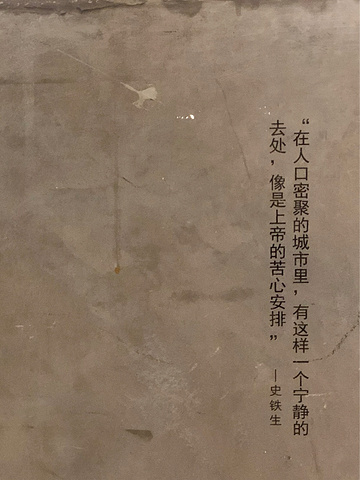 “在人口密聚的城市里，有这样一个宁静的
去处，像是上帝的苦心安排”
—史铁生